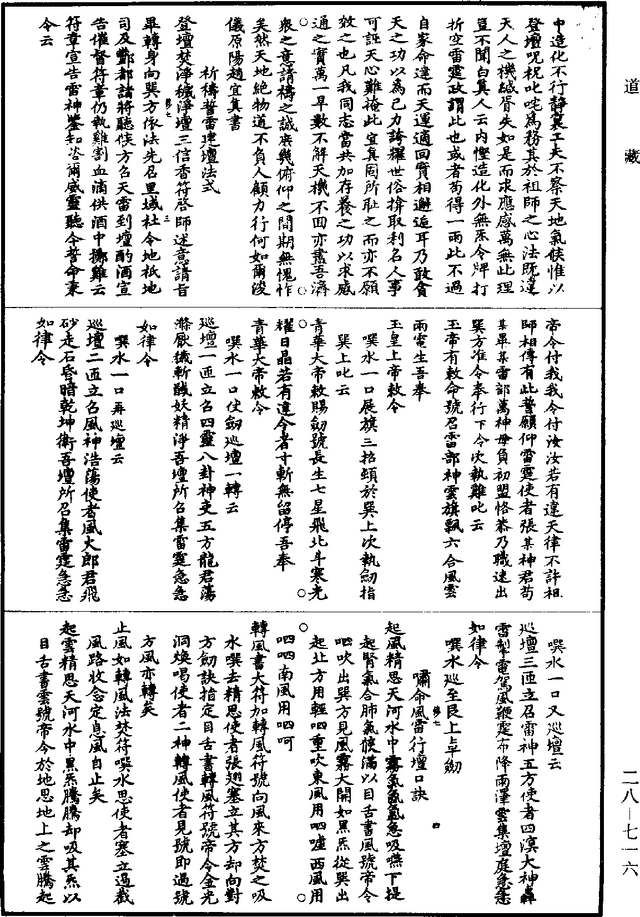 道藏
中造化不行靜裏工夫不察天地氣候惟以
登壇呪祝叱咤為務其於祖師之心法旣違
天人之機緘胥失如是而求應感萬無此理
豈不聞白真人云内慳造化外無炁令牌打
折空雷霆政謂此也或者苟得一雨此不過
自家命達而天運適回實相邂逅耳乃敢貪
天之功以為己力誇耀世俗揜取利名人事
可誣天心難掩此宜真同所恥之而亦不願
效之也凡我同志當共加存養之功以求感
通之實萬一旱數不解天機不回亦盡吾濟
衆之意請禱之誠庶幾俯仰之間期無愧怍
矣然天地絶物道不負人顧力行何如爾浚
儀原陽趙宜真書
祈禱誓雷建壇法式
登壇焚淨穢淨壇三信香符啓師述意請旨
畢轉身向巽方依法先召里域社令地祇地
司及酆都諸將聽候方召天雷到壇酌酒宣
告催督符章仍執雞割血滴供酒中擲雞云
符章宣告雷神鑒知咨爾威靈聽令誓命秉
令云
帝令付我我今付汝汝若有違天律不許祖
師相傳有此誓願仰雷霆使者張某神君苟
某畢某雷部萬神毋負初盟恪恭乃職速出
巽方准令奉行下令次執雞叱云
玉帝有敕命號召雷部神雲旗飄六合風雲
雨電生吾奉
玉皇上帝敕令
噀水一口展旗三招顉於巽上次執劒指
巽上叱云
青華大帝敕賜劒號長生七星飛北斗寒光
耀日晶若有違令者寸斬無留停吾奉
青華大帝敕令
噀水一口仗劒巡壇一轉云
巡壇一匝立召四靈八卦神吏五方龍君蕩
滌厭穢斬馘妖精淨吾壇所召集雷霆急急
如律令
噀水一口再巡壇云
巡壇二匝立召風神浩蕩使者風大郎君飛
砂走石昏暗乾坤衛吾壇所召集雷霆急急
如律令
噀水一口又巡壇云
巡壇三匝立召雷神五方使者四溟大神轟
雷掣電駕風鞭霆布降雨澤雲集壇庭急急
如律令
噀水巡至艮上卓劒
嘯命風雷行壇口訣
起風精思天河水中霧氣氤氲急吸嚥下提
起腎氣合肺氣候滿以目舌書風號帝令
呬吹出巽方見風霧大開如黑炁從巽出
起北方用輕呬重吹東風用呬噓西風用
呬呬南風用呬呵
轉風書大符加轉風符號向風來方焚之吸
水噀去精思使者張翅塞立其方却向對
方劒訣指定目舌書轉風符號帝令金光
洞煥喝使者二神轉風使者見號即過號
方風亦轉矣
止風如轉風法焚符噀水思使者塞立過截
風路收念定息風自止矣
起雲精思天河水中黑炁騰騰却吸其炁以
目舌書雲號帝令於地思地上之雲騰起
二八—七一六